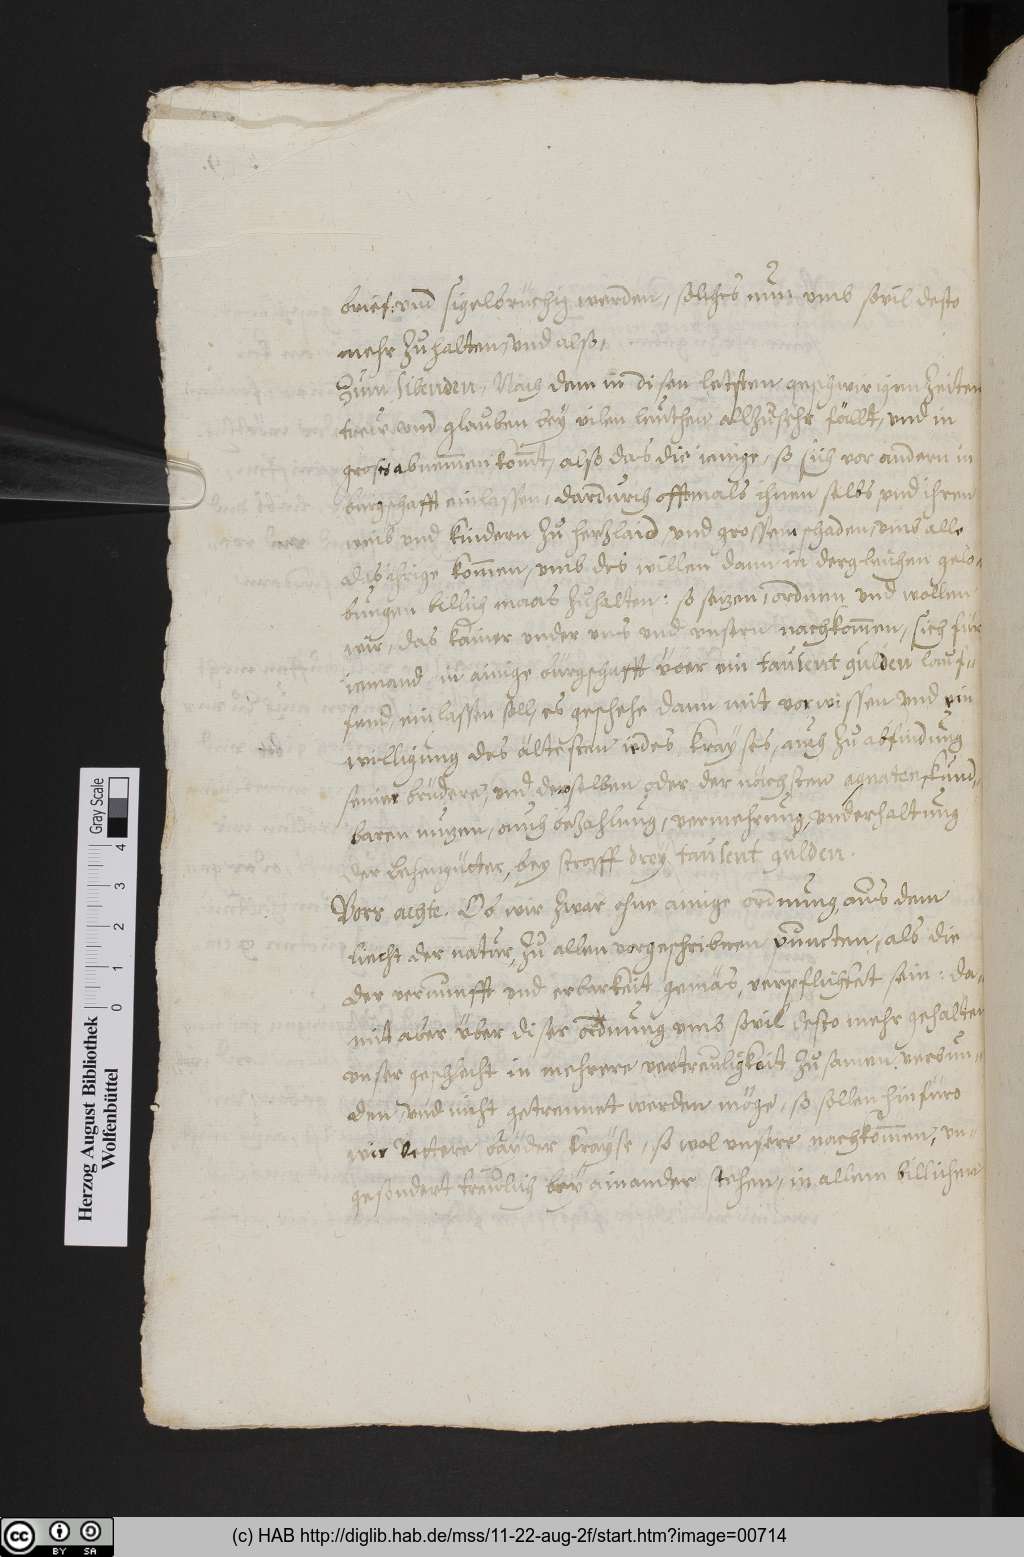 brief: und sigelbrüchig werden, solches nun umb sovil desto
mehr zuhalten, und also,
Zum sibenden, Nach dem in disen letsten geschwirigen zeiten
treü: und glauben bey vilen leüthen allzusehr föllt, und in
groses abnemmen kom̄t, also das die ienige, so sich vor andern in
burgschafft einlassen, dardurch offtmals ihnen selbs und ihren
weib und kindern zu herzlaid, und grossem schaden, umb alle
das ihrige kom̄en, umb des willen dann in dergleichen gelo-
bungen billich maas zuhalten: so sezen, ordnen und wollen
wir, das kainer under uns und unsern nachkom̄en, sich für
iemand in ainige bürgschafft über ein tausent gulden lauf-
fend, einlassen soll, es geschehe dann mit vorwissen und ein
willigung des ältesten iedes krayses, auch zu abfindung
seiner brüdere, und derselben oder der nächsten agnaten kund-
baren nuzen, auch bezahlung, vermehrung, underhaltung
der Lehengütter, bey straff drey tausent gulden.
Vors achte. Ob wir zwar ohne ainige ordnung, aus dem
liecht der natur, zu allen vorgeschribnen puncten, als die
der vernunfft und erbarkeit gemäs, verpflichtet sein: da-
mit aber über diser ordnung umb sovil desto mehr gehalten
unser geschlecht in mehrere vertreulichkeit zusamen verbun-
den, und nicht getrennet werden möge, so sollen hinfüro
wir Vettere bayder krayse, so wol unsere nachkom̄en, un-
gesöndert treulich bey ainander stehen, in allem billichen
Herzog August Bibliothek
Wolfenbüttel
0 1 2 3 4
Gray Scale
cc BY SA
(c) HAB http://diglib.hab.de/mss/11-22-aug-2f/start.htm?image=00714